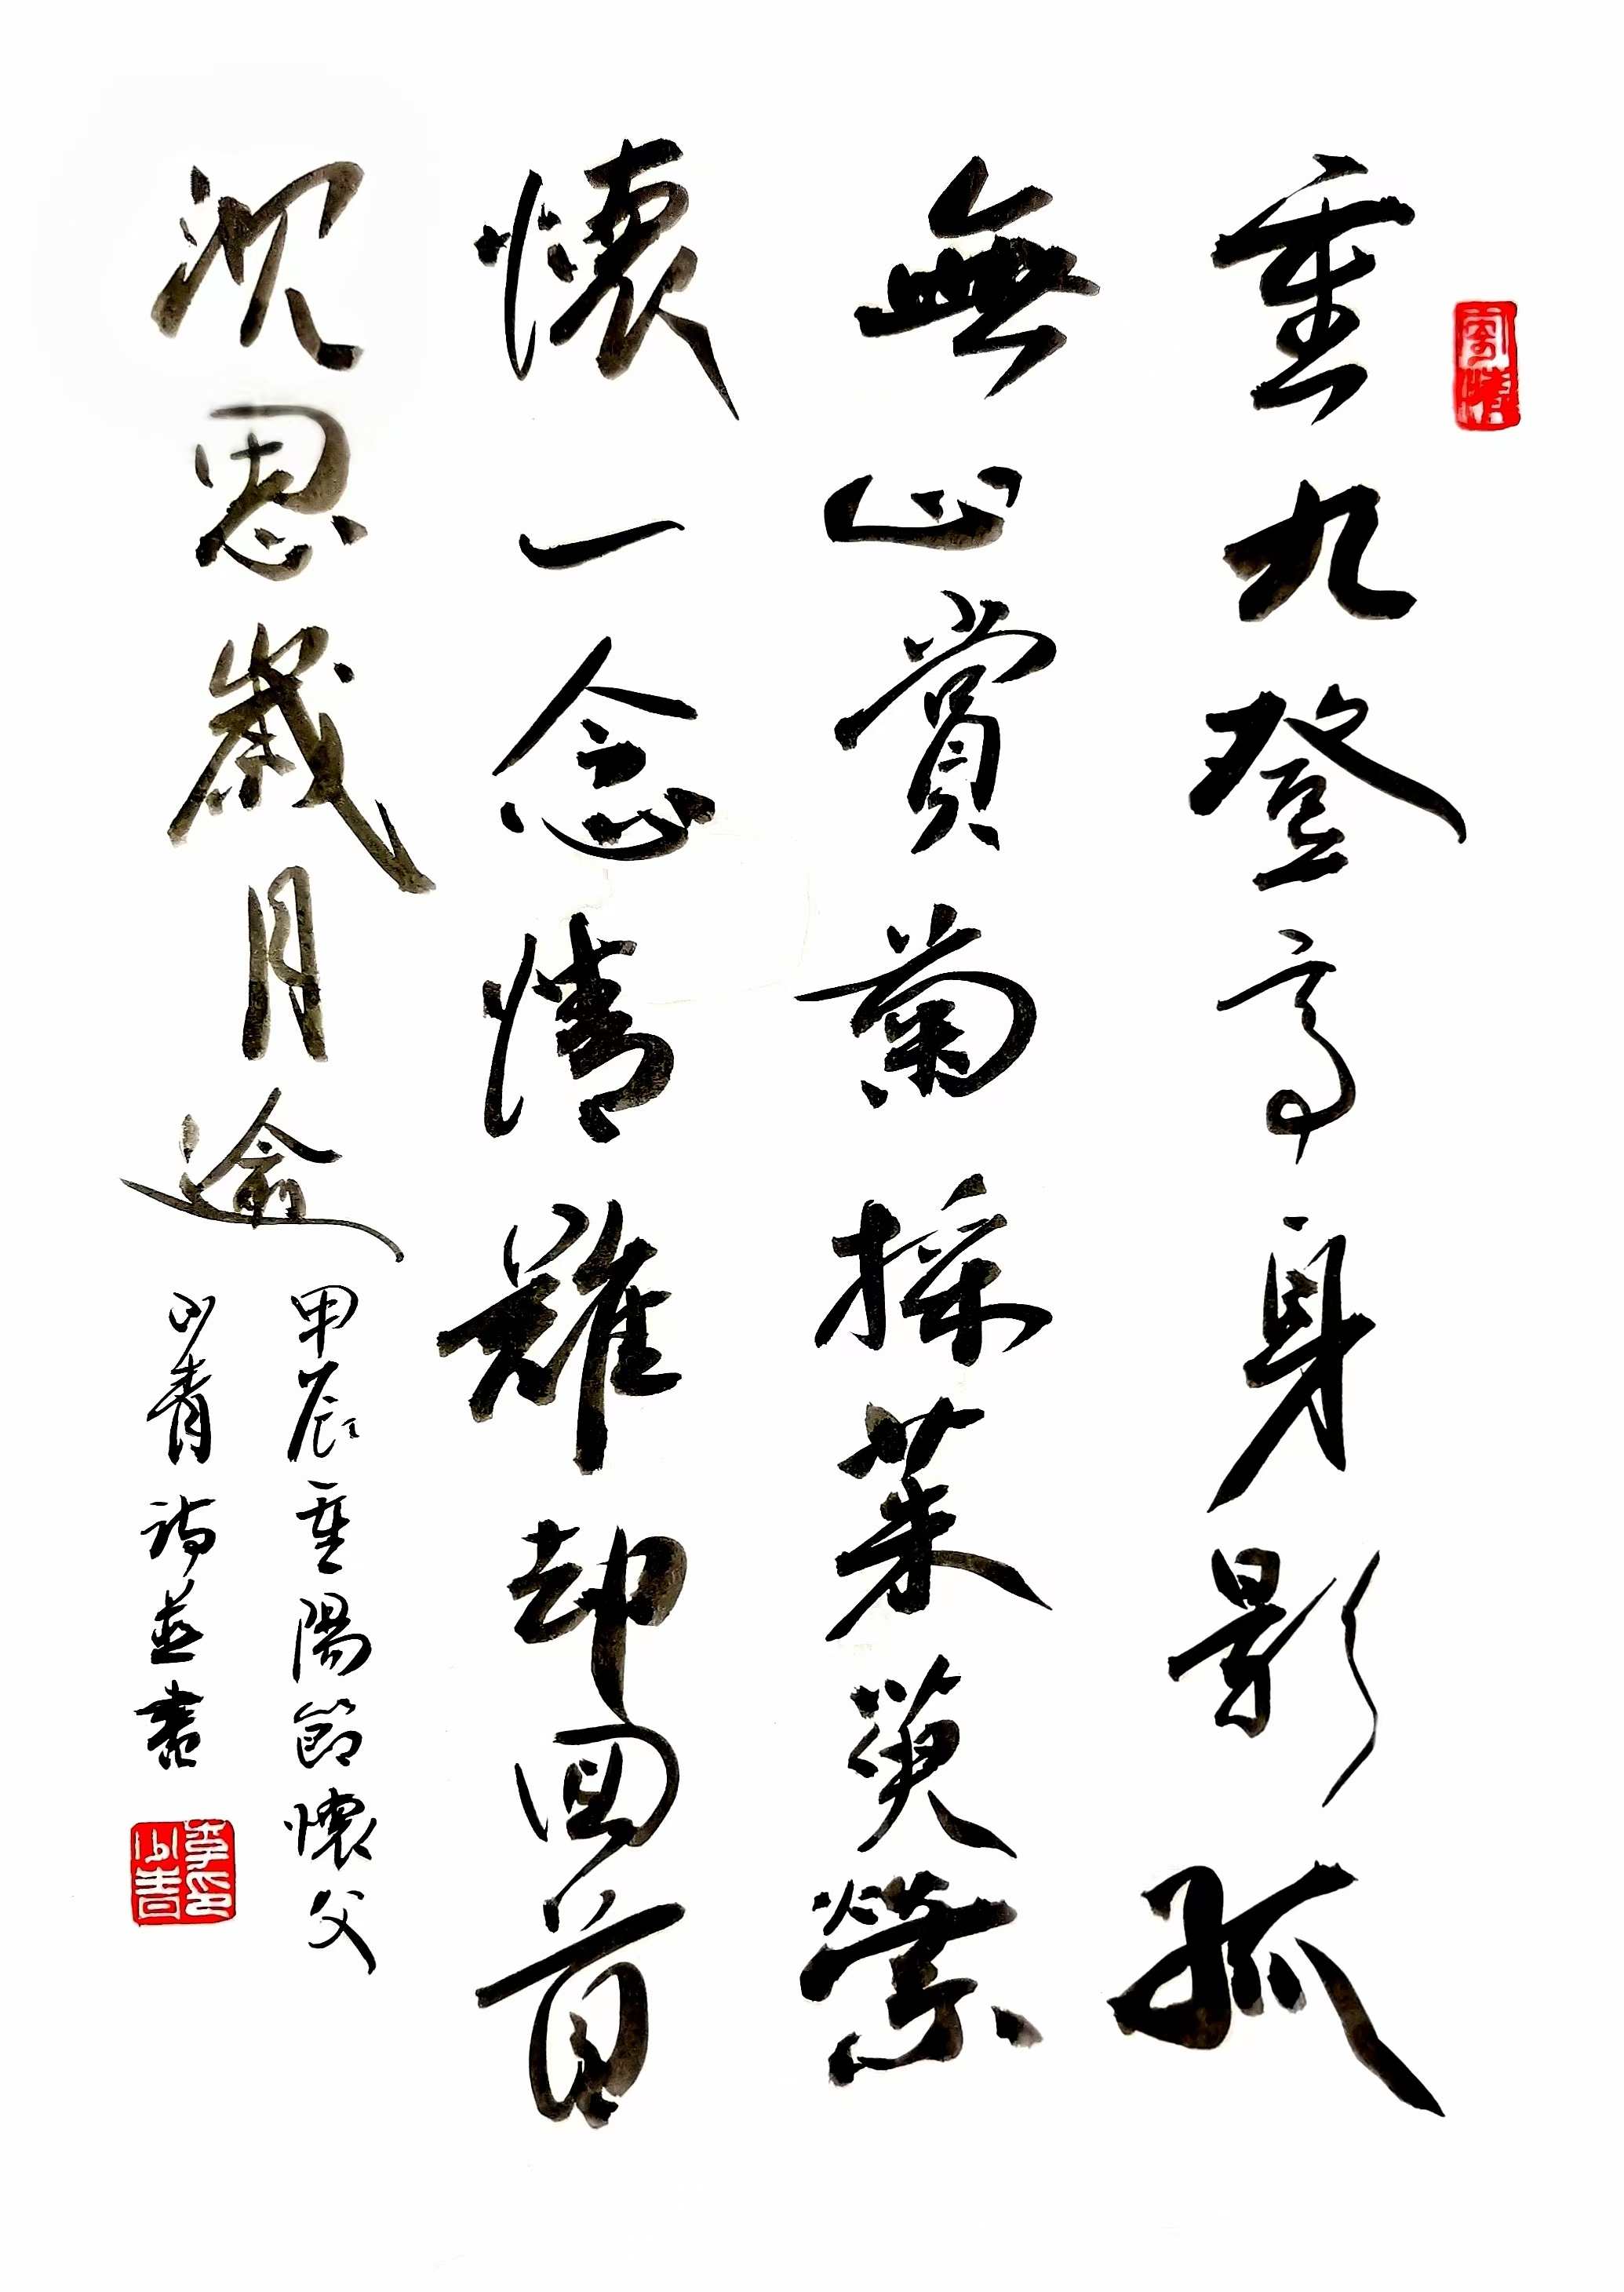 寄情
重九登高身影孤
無心賞菊採茱萸縈
懷一念情難却回首
沉思歲月逾
甲辰重陽節懷父
青詩並書
李印